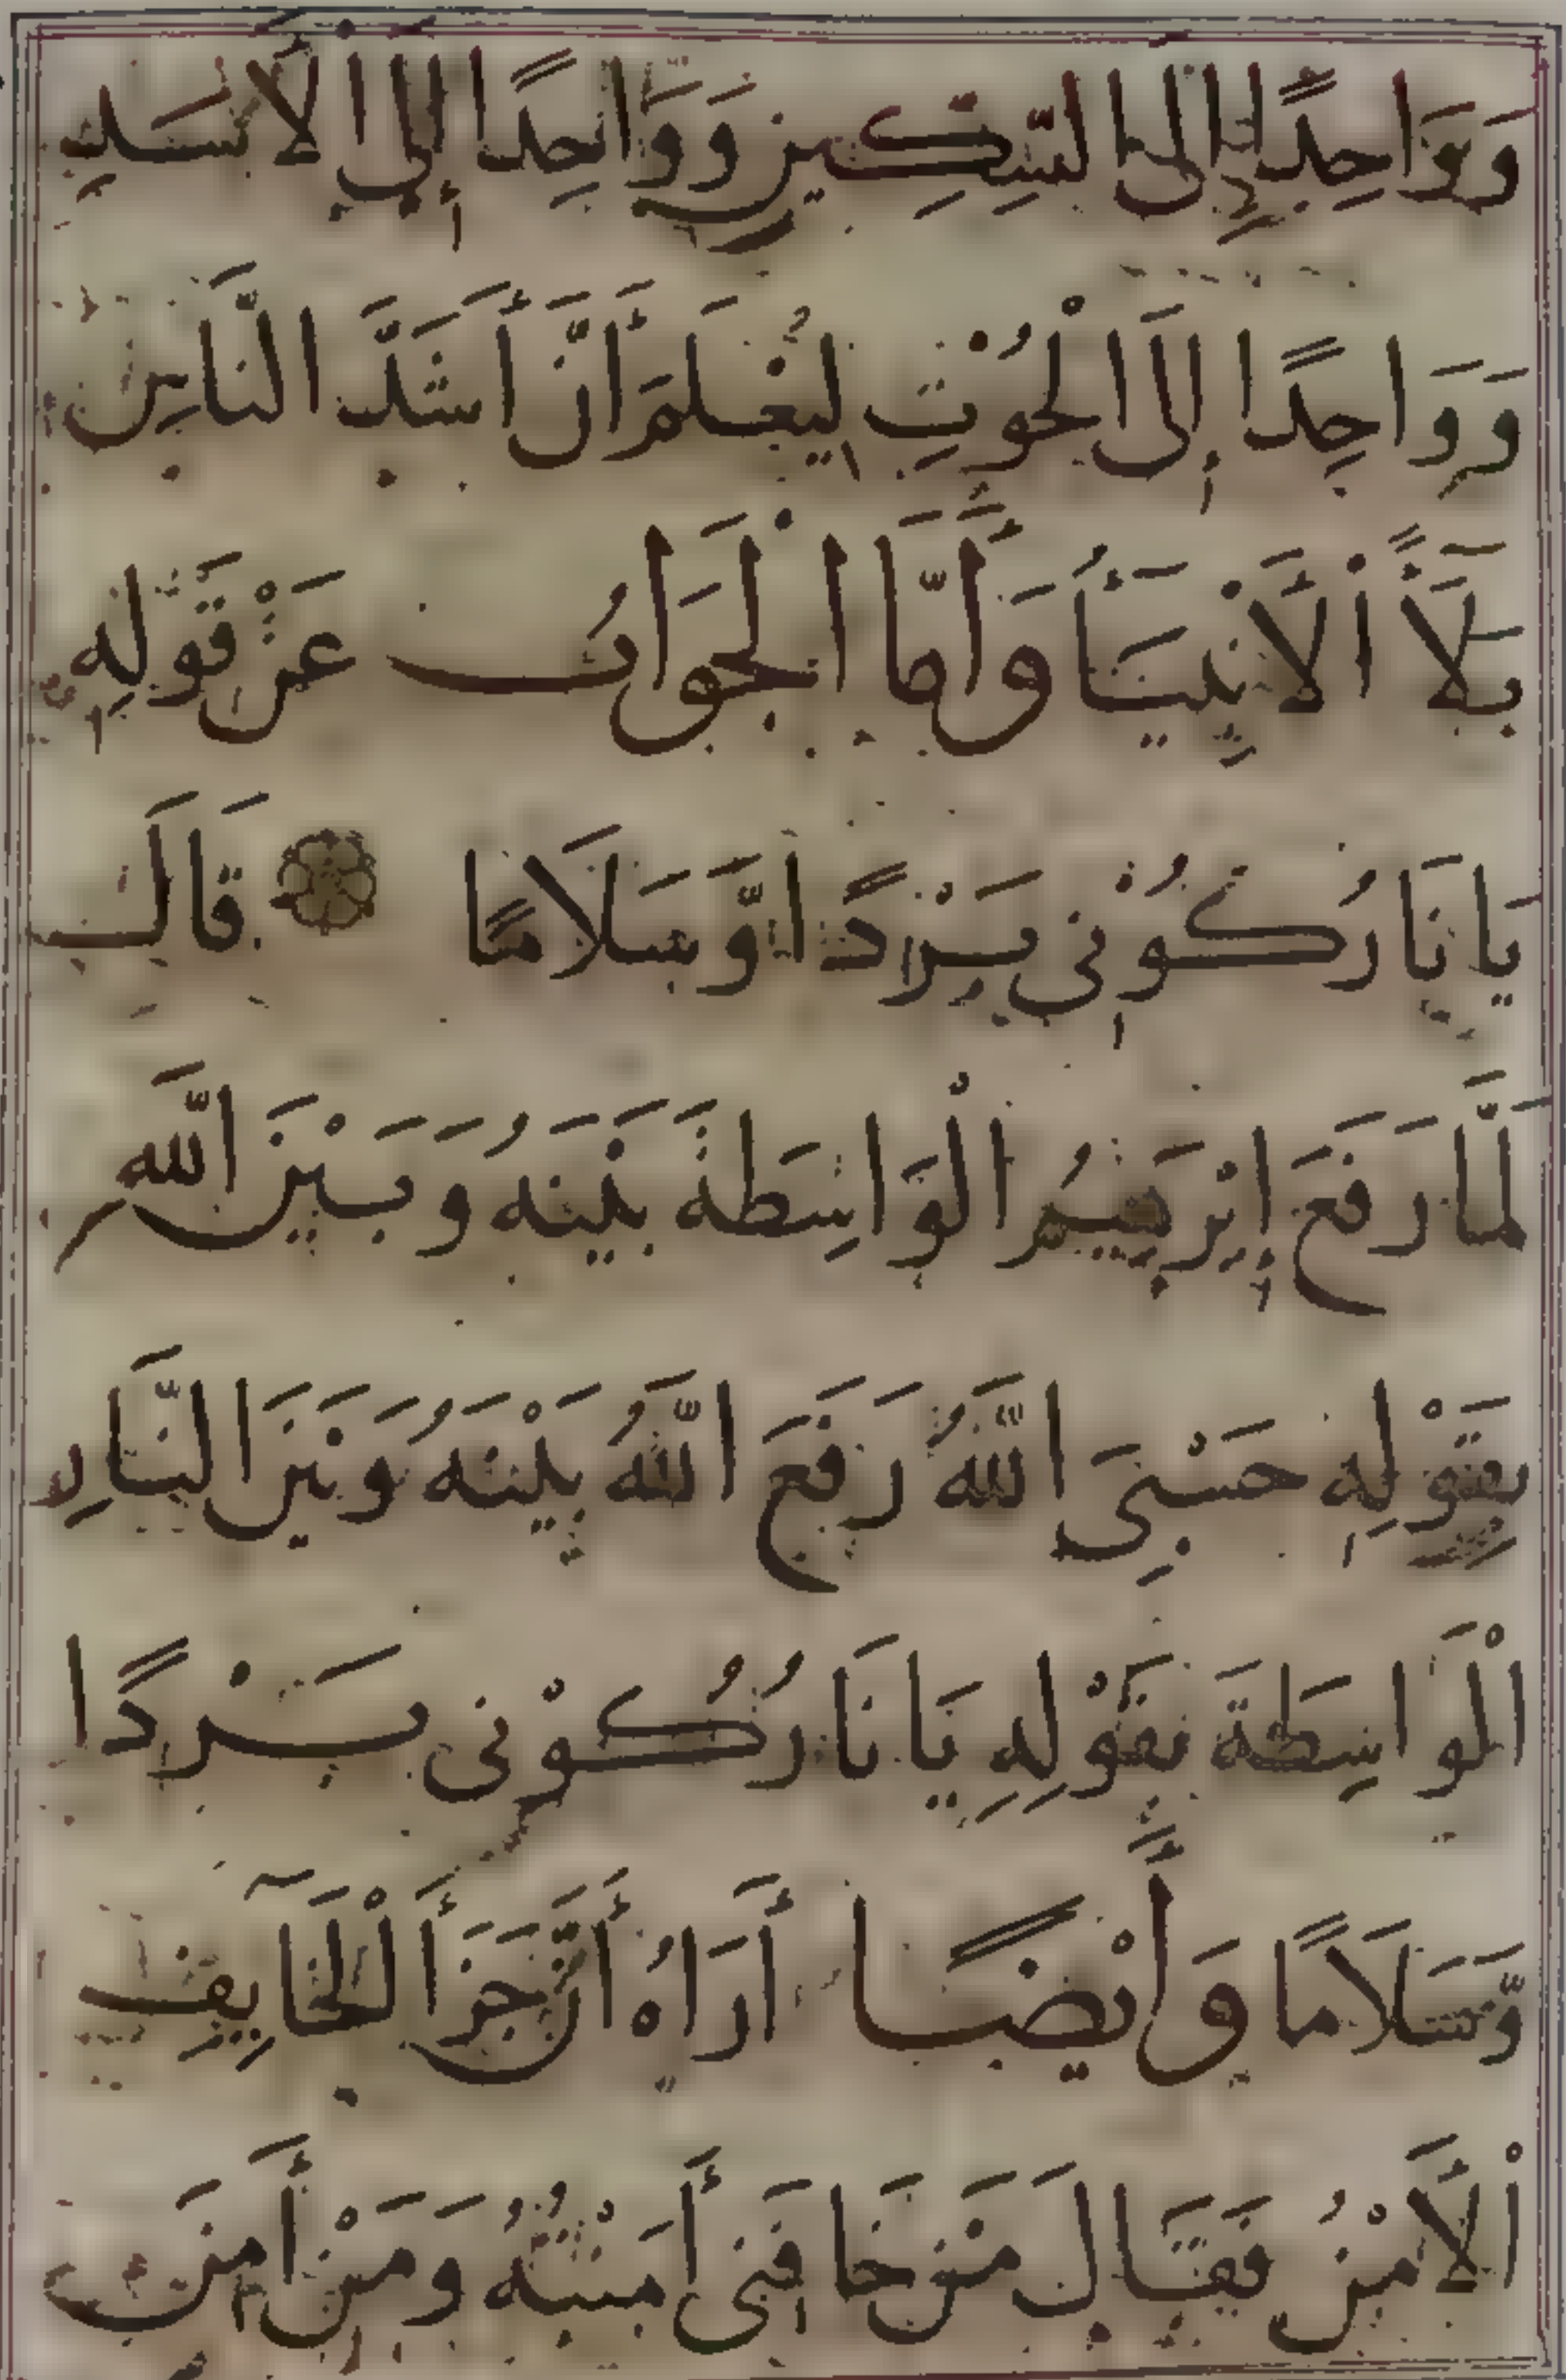 وَوَاحِدًا إِلَى السِّكِّينِ وَوَاحِدًا إِلَى الْأَسَدِ
وَوَاحِدًا إِلَى الْحُوْتِ لِيُعْلَمَ أَنَّ أَشَدَّ النَّاسِ
بَلَآءً اْلأَنْبِيَاُ وَأَمَّا الْجَوَابُ عَنْ قَوْلِهِ
يَا نَارُ كُوْنِى بَرْدًا وَّسَلَامًا قَالَ
لَمَّا رَفَعَ إِبْرَهِيْمُ الْوَاسِطَةَ بَيْنَهُ وَبَيْنَ اللَّه
بِقَوْلِهِ حَسْبِىَ اللَّهُ رَفَعَ اللَّهُ بَيْنَهُ وَبَيْنَ النَّارِ
الْوَاسِطَةَ بِقَوْلِهِ يَا نَارُ كُوْنِى بَرْدًا
وَّسَلَامًا وَأَيْضًا أَرَاهُ أَنَّ جَزَأَ الْخَآيِفِ
اْلأَمْنُ فَقَالَ مَنْ خَافَنِى أَمَنْتُهُ وَمَنْ أَمِنَ